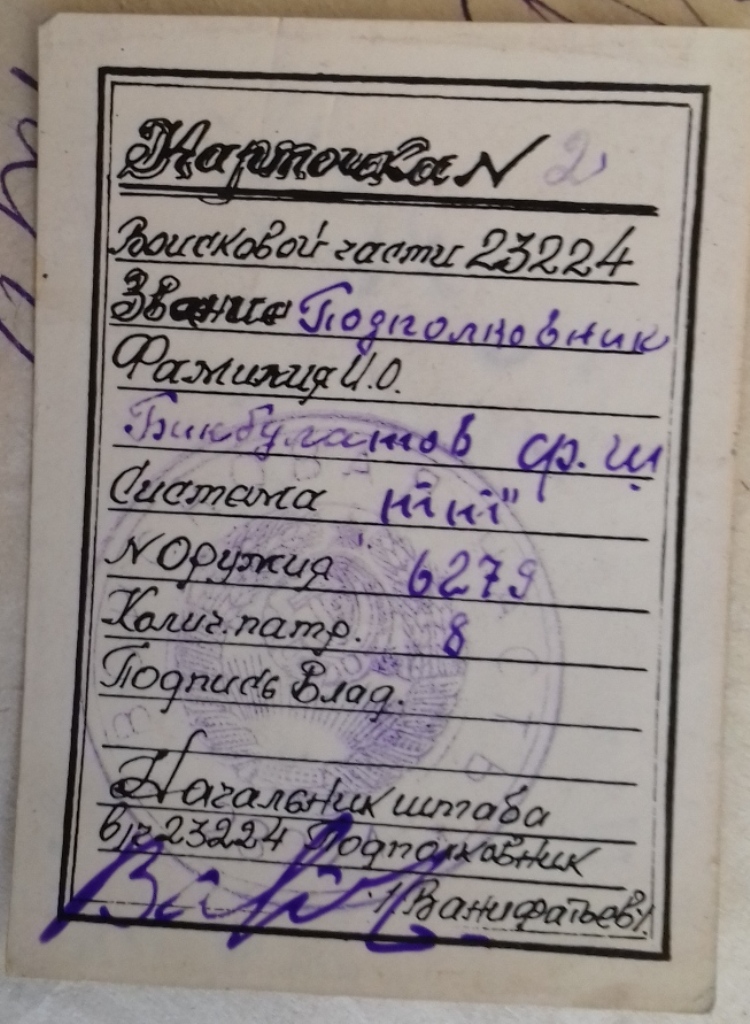 Карточка N 2
Воисковой части 23224
Звание Подполковник
Фамилия И.О.
Бикбулатов Ф.Ш
Система
N Оружия 6279
Колич. патр. 8
Подпись Влад.
Начальник штаба
в/ч 23224 Подполковник
/Ванифатьев/